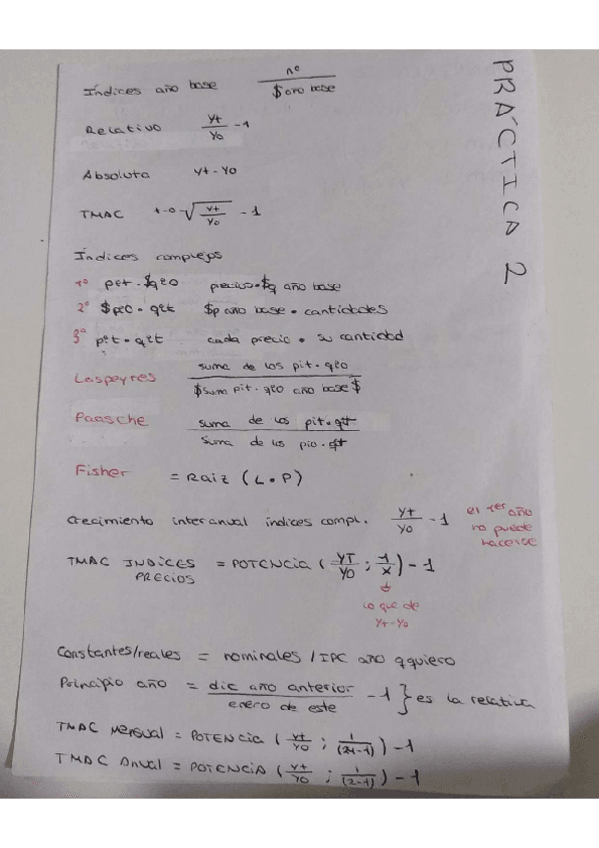 PRÁCTICA 2
Índices año base nº / $ año base
Relativo yt / yo -1
Absoluta yt - yo
TMAC t-o √ yt / yo - 1
Índices complejos
1º pit · $qio precio · $q año base
2º $pio · qit $p año base · cantidades
3º pit · qit cada precio · su cantidad
Laspeyres suma de los pit · qio / $ suma pit · qio año base $
Paasche suma de los pit · qit / suma de los pio · qt
Fisher = Raiz (L · P)
Crecimiento interanual índices compl. yt / yo - 1 el 1er año no puede hacerse
TMAC INDICES PRECIOS = POTENCIA ( YT / YO ; 1 / x ) - 1
lo que de
yt - yo
Constantes/reales = nominales / IPC año q quiero
Principio año = dic año anterior / enero de este - 1 } es la relativa
TMAC Mensual = POTENCIA ( yt / yo ; 1 / (24-1) ) - 1
TMAC Anual = POTENCIA ( yt / yo ; 1 / (2-1) ) - 1